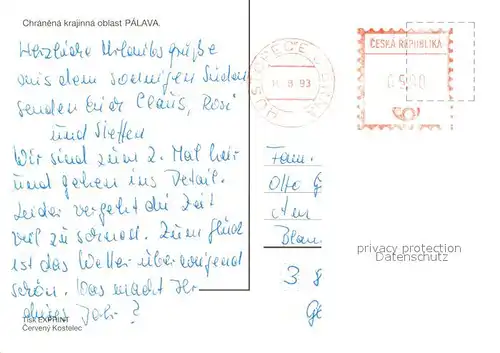 Chráněná krajinná oblast PÁLAVA.
Herzliche Urlaubsgrüße
aus dem sonnigen Süden
senden Euch Claus, Rosi
und Steffen
Wir sind zum 2. Mal hier
und gehen ins Detail.
Leider vergeht die Zeit
viel zu schnell. Zum Glück
ist das Wetter überwiegend
schön. Was macht Ihr
dieses Jahr?
Tisk EXPRINT
Červený Kostelec
HUSTOPEČE U BRNA
8 93
ČESKÁ REPUBLIKA
Fam.
Otto G
Am
Blan
3 8
Ge
privacy protection
Datenschutz